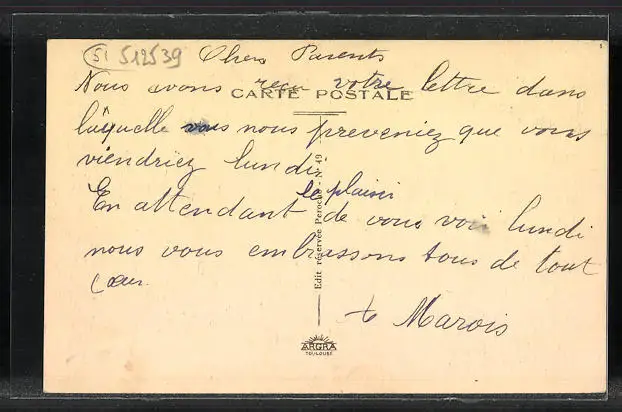 51 512539 Chers Parents
Nous avons reçu votre lettre dans
CARTE POSTALE
laquelle vous nous preveniez que vous
viendriez lundi.
En attendant le plaisir de vous voir lundi
nous vous embrassons tous de tout
cœur.
Marois
Edit réservée Peroche - N° 49
ARGRA
TOULOUSE